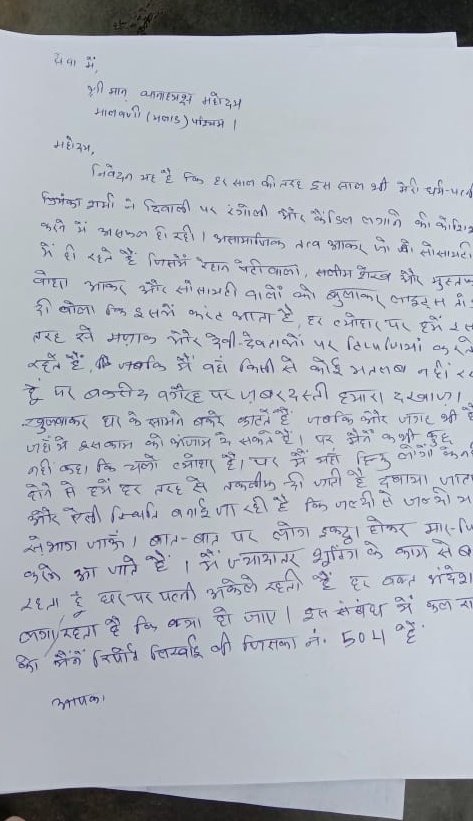 सेवा में,
श्री मान् थानाध्यक्ष महोदय
मालवणी (मलाड) पश्चिम।
महोदय,
निवेदन यह है कि हर साल की तरह इस साल भी मेरी धर्म-पत्नी
शर्मा ने दिवाली पर रंगोली और कैंडिल लगाने की कोशिश
करने में असफल ही रही। असामाजिक तत्व आकर जो सोसायटी
में ही रहते हैं जिसमें रेहान पेटीवाला, सलीम शेख और
वोहा आकर और सोसायटी वालों को बुलाकर लाइट्स
ही बोला कि इसमें करंट आता है, हर त्योहार पर हमें इस
तरह से मज़ाक और देवी-देवताओं पर टिप्पणियां करते
रहते हैं, जबकि मैं वहां किसी से कोई मतलब नहीं
हूँ पर बकरीद वगैरह पर ज़बरदस्ती हमारा दरवाजा
खुलवाकर घर के सामने बकरे काटते हैं जबकि और जगह भी है
जहाँ वे इस काम को अंजाम दे सकते हैं। पर मैंने कभी कुछ
नहीं कहा कि चलो त्योहार है। पर में वहाँ हिन्दू लोगों
होने से हमें हर तरह से तकलीफ दी जाती है दबाया जाता
और ऐसी स्थिति बनाई जा रही है कि जल्दी से जल्दी
से भाग जाऊं। बात-बात पर लोग इकट्ठा होकर मार-पि
करने आ जाते हैं। मैं ज्यादातर शूटिंग के काम से
रहता हूं घर पर पत्नी अकेले रहती हैं हर वक्त अंदेशा
लगा रहता है कि क्या हो जाए। इस संबंध में कल
को मैंने रिपोर्ट लिखाई थी जिसका नं. 504 है
आपका